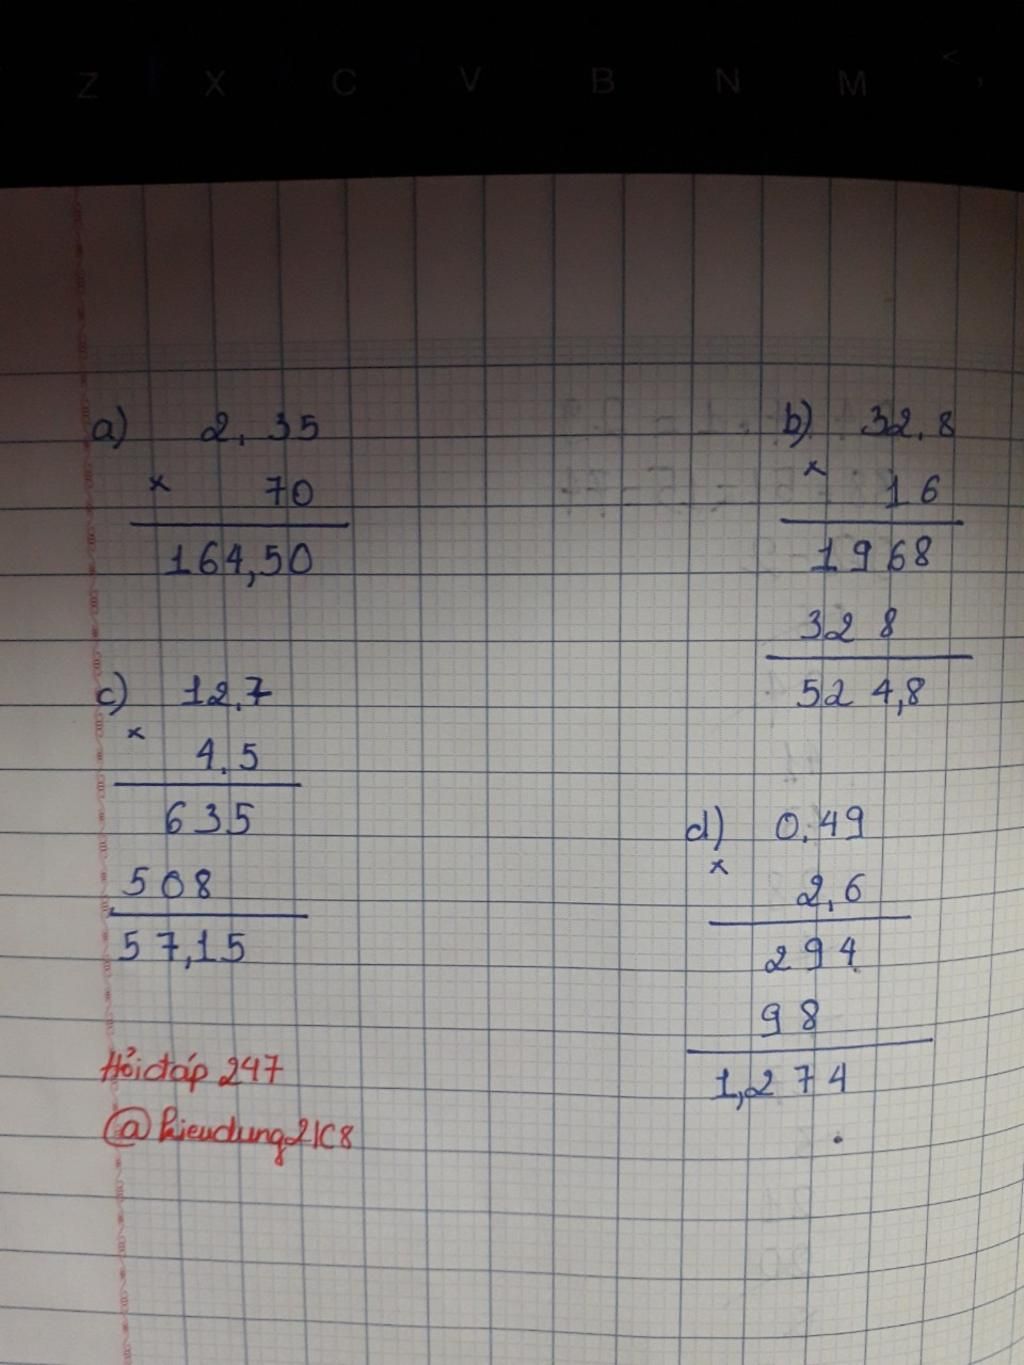 Z X C V B N M < ,
a) 2,35
× 70
164,50
b) 32,8
× 16
1968
328
524,8
c) 12,7
× 4,5
635
508
57,15
d) 0,49
× 2,6
294
98
1,274
Hỏi đáp 247
@kieudung21C8